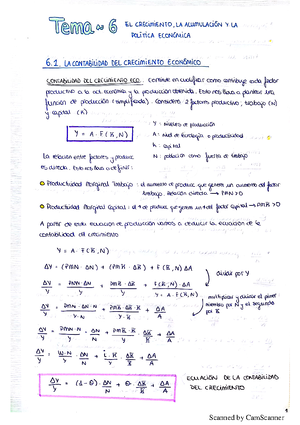 Tema 6 EL CRECIMIENTO, LA ACUMULACIÓN Y LA
POLÍTICA ECONÓMICA
6.1. LA CONTABILIDAD DEL CRECIMIENTO ECONÓMICO
CONTABILIDAD DEL CRECIMIENTO ECO. Consiste en cuantificar como contribuye cada factor
productivo a la act. económica y la producción obtenida. Esto nos lleva a plantear una
función de producción (simplificada). Considera 2 factores productivos: trabajo (N)
y capital (K)
Y = A · F(K, N)
Y : Niveles de producción
A : Nivel de tecnología o productividad
K : capital
N : población como fuerza de trabajo
La relación entre factores y producc
es directa. Esto nos lleva a definir:
Productividad Marginal Trabajo : el aumento de produc que genera un aumento del factor
trabajo. Relación directa → PMN > 0
Productividad Marginal Capital : el ↑ de produc que genera un ↑ del factor capital → PMK > 0
A partir de esta ecuación de producción vamos a deducir la ecuación de la
contabilidad del crecimiento
Y = A · F(K, N)
ΔY = (PMN · ΔN) + (PMK · ΔK) + F(K, N) ΔA
dividir por Y
ΔY/Y = PMN · ΔN/Y + PMK · ΔK/Y + F(K, N) ΔA/Y = A · F(K, N)
ΔY/Y = PMN · ΔN/Y · N/N + PMK · ΔK/Y · K/K + ΔA/A
multiplicar y dividir el primer
elemento por N y el segundo
por K
ΔY/Y = PMN · N/Y · ΔN/N + PMK · K/Y · ΔK/K + ΔA/A
ΔY/Y = W · N/Y · ΔN/N + i · K/Y · ΔK/K + ΔA/A
ΔY/Y = (1 - θ) · ΔN/N + θ · ΔK/K + ΔA/A
ECUACIÓN DE LA CONTABILIDAD
DEL CRECIMIENTO
Scanned by CamScanner